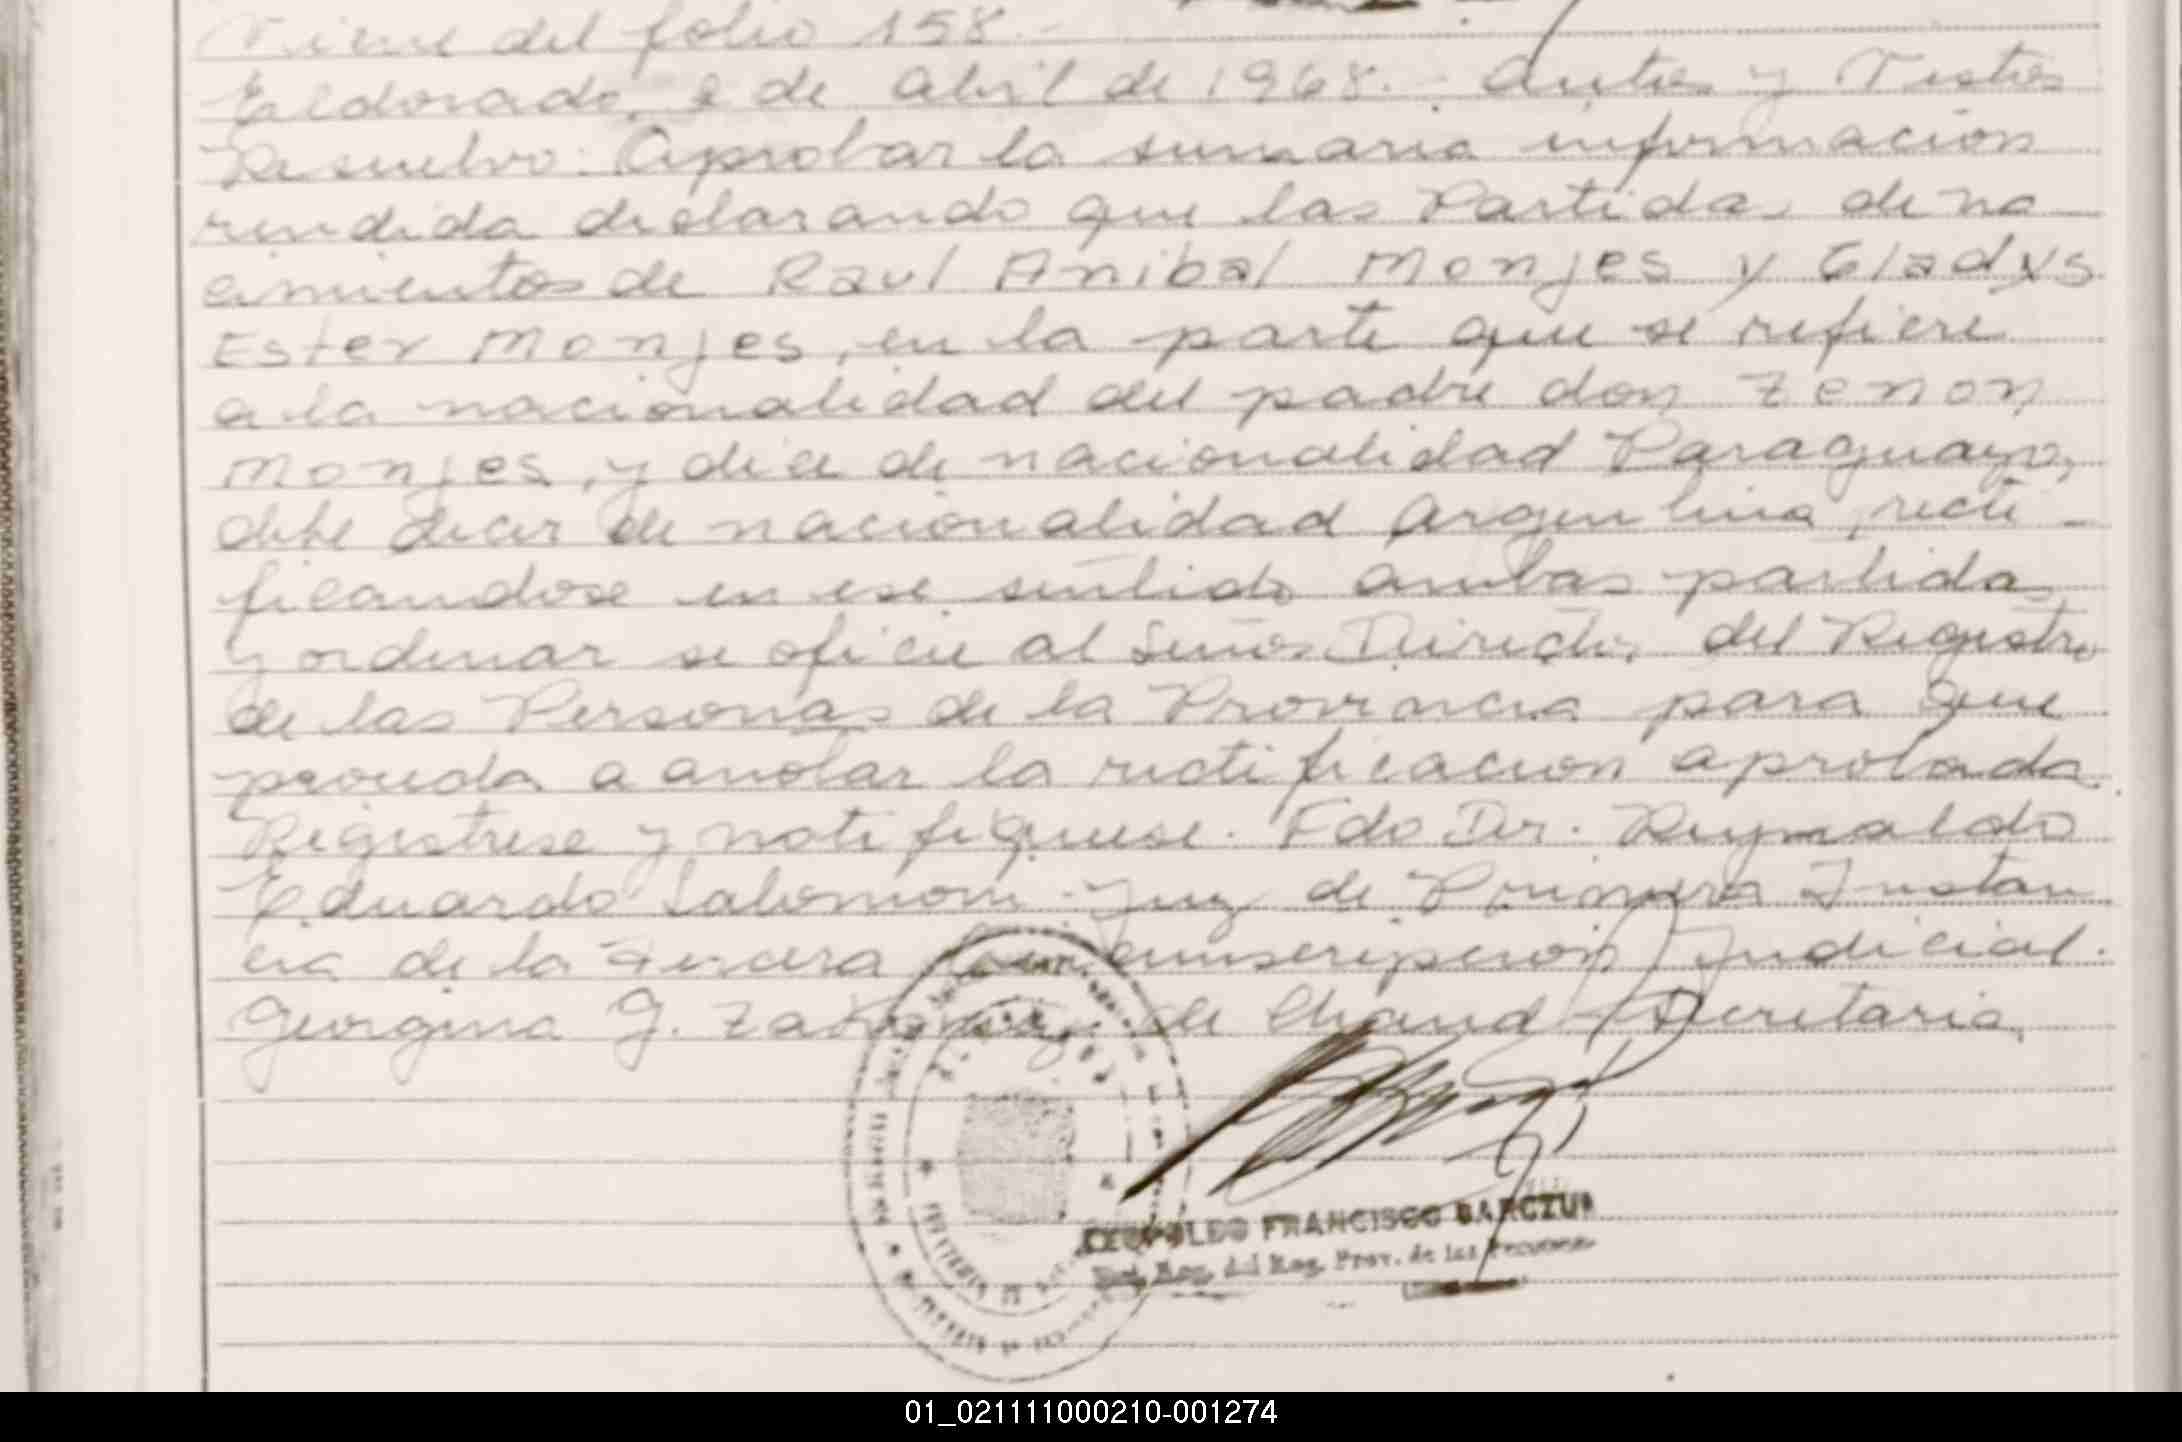 Viene del folio 158.-
Eldorado, 2 de Abril de 1968.- Autos y Vistos
Resuelvo: Aprobar la sumaria informacion
rendida declarando que las Partidas de na-
cimientos de Raul Anibal Monjes y Gladys
Ester Monjes, en la parte que se refiere
a la nacionalidad del padre don Zenon
Monjes, y dice de nacionalidad Paraguayo,
debe decir de nacionalidad Argentina, recti-
ficandose en ese sentido ambas partidas
y ordenar se oficie al Señor Director del Registro
de las Personas de la Provincia para que
proceda a anotar la rectificacion aprobada.
Registrese y notifiquese. Fdo Dr. Reynaldo
Eduardo Salomon - Juez de Primera Instan
cia de la Tercera Circunscripcion Judicial.
Georgina G. de Chand - Secretaria,
LEOPOLDO FRANCISCO
del Reg. Prov. de las Personas
01_021111000210-001274